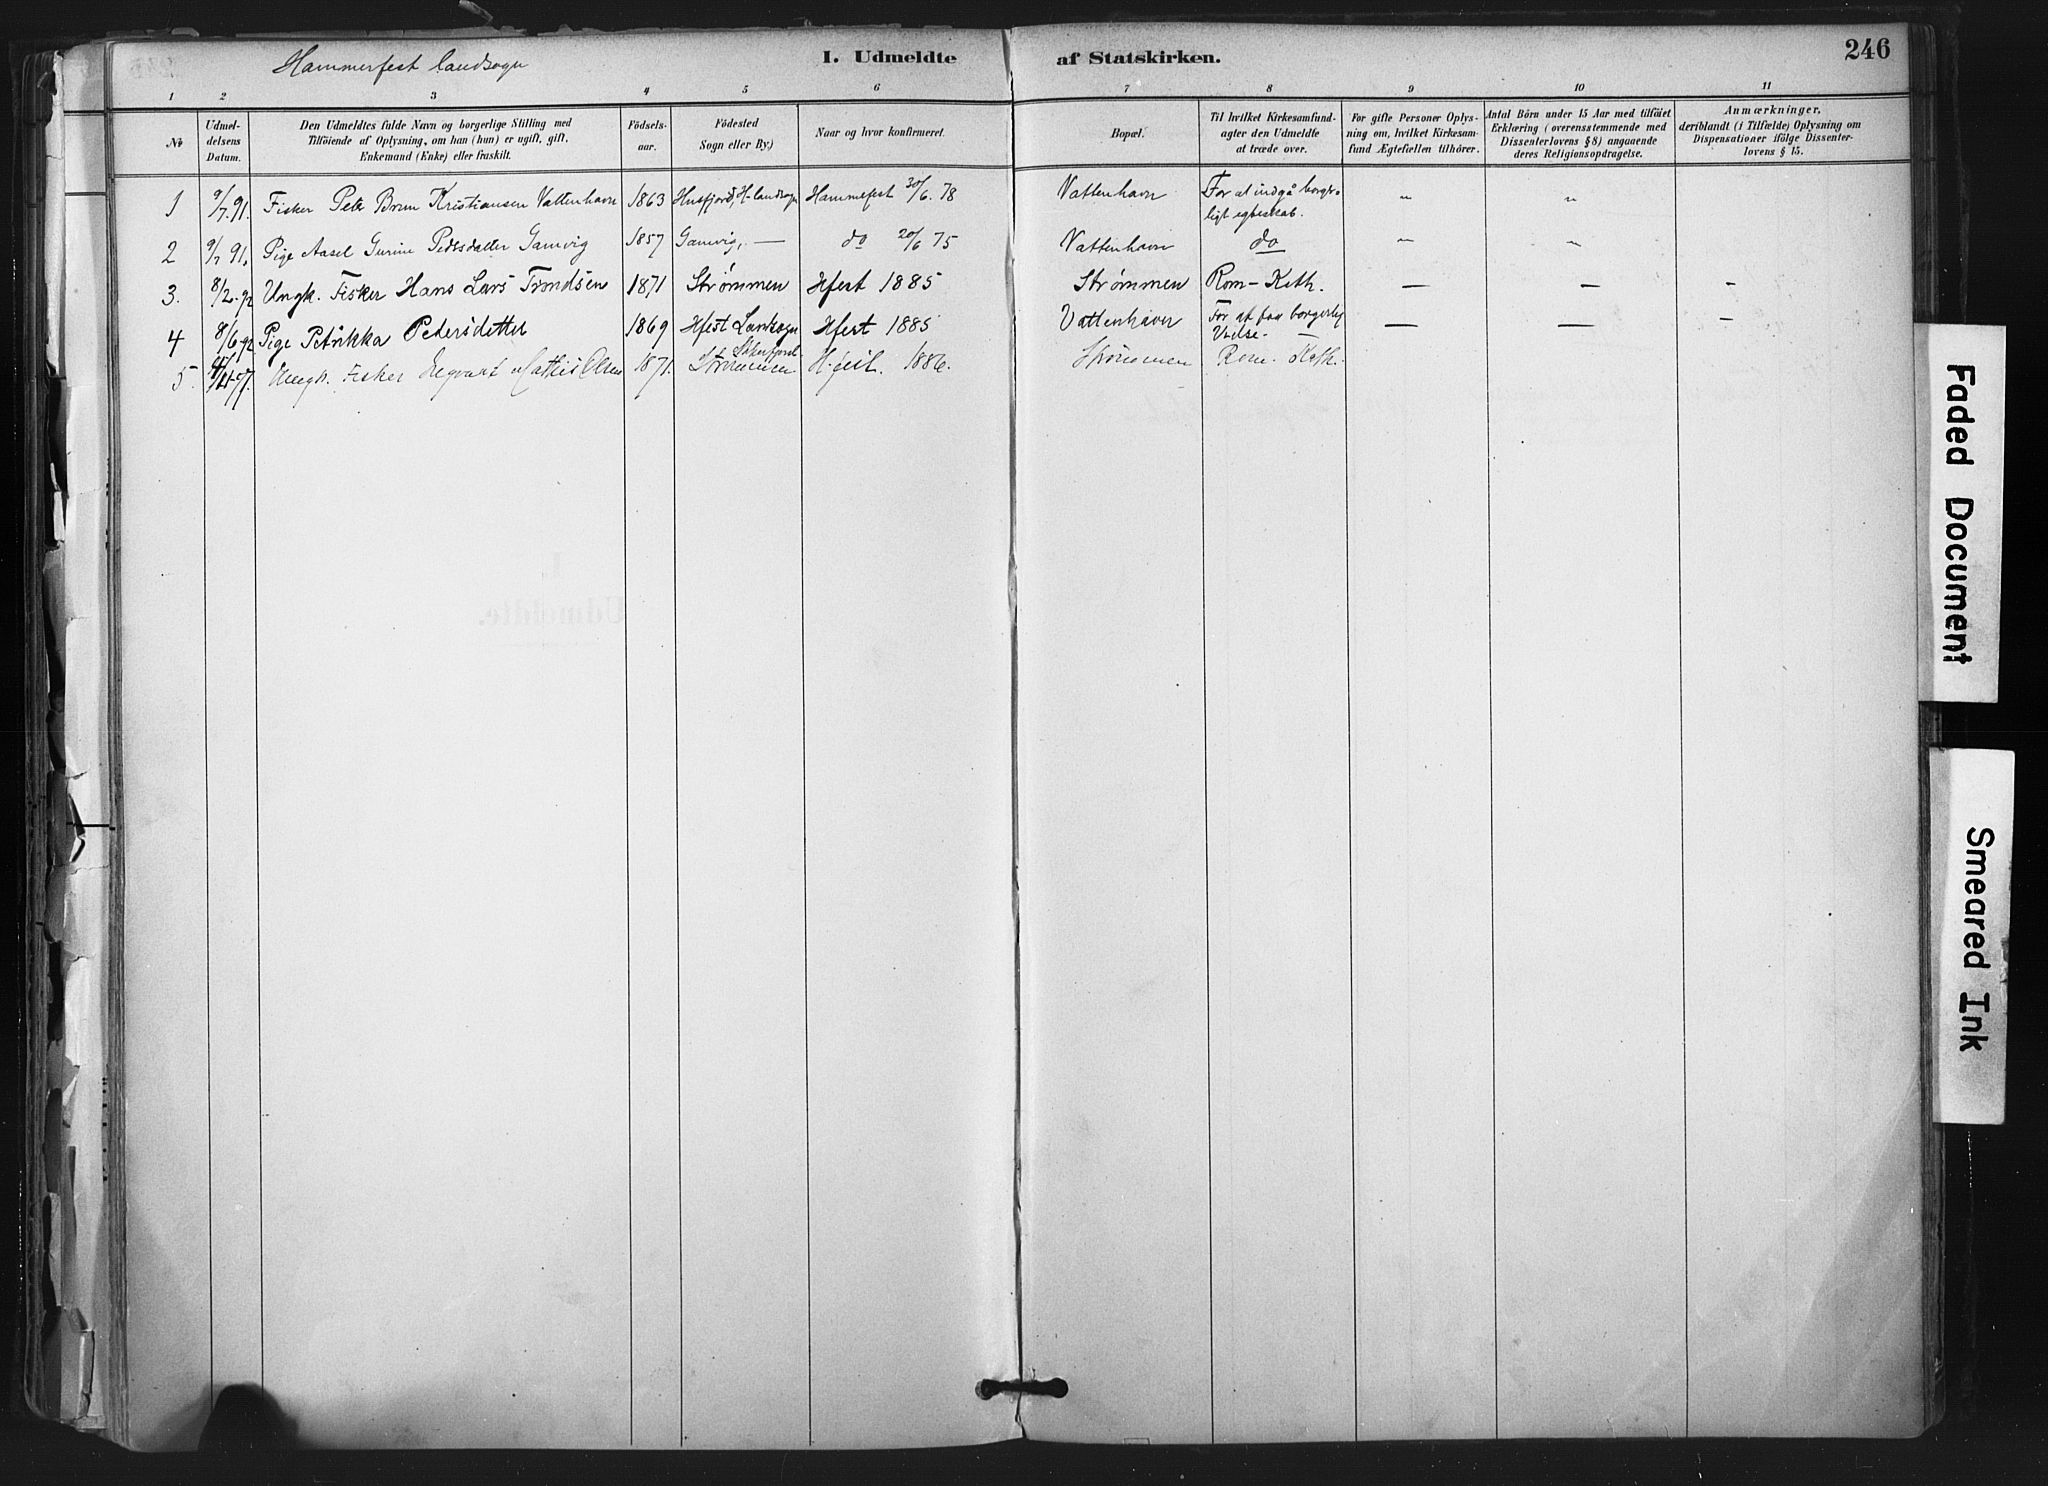 Hammerfest landsogn
I. Udmeldte af Statskirken. 246
1 2 3 4 5 6 7 8 9 10 11
№
Udmel-
delsens
Datum.
Den Udmeldtes fulde Navn og borgerlige Stilling med
Tilföiende af Oplysning, om han (hun) er ugift, gift,
Enkemand (Enke) eller fraskilt.
Födsels-
aar.
Födested
Sogn eller By.)
Naar og hvor konfirmeret.
Bopæl.
Til hvilket Kirkesamfund-
agter den Udmeldte
at træde over.
For gifte Personer Oplys-
ning om, hvilket Kirkesam-
fund Ægtefællen tilhörer.
Antal Börn under 15 Aar med tilföiet
Erklæring (overensstemmende med
Dissenterlovens § 8) angaaende
deres Religionsopdragelse.
Anmærkninger,
deriblandt (i Tilfælde) Oplysning om
Dispensationer ifölge Dissenter-
lovens § 15.
1 9/7. 91. Fisker Peter Brun Kristiansen Vattenhavn 1863 Husfjord, H-landsogn Hammerfest 30/6. 78 Vattenhavn For at indgå borger-
ligt egteskab. „ „
2 9/7 91. Pige Aasel Gurine Pedersdatter Gamvig 1857 Gamvig, — do 20/6 75 Vattenhavn do „ „
3. 8/2. 92 Ungk. Fisker Hans Lars Trondsen 1871 Strømmen Hfest 1885 Strømmen Rom-Kath. — — -
4 8/6 92 Pige Petrikka Pedersdatter 1869 Hfest Landsogn Hfest 1885 Vattenhavn For at faa borgerlig
Vielse. — — -
5. Ungk. Fisker Olsen 1871. Strømmen H-fest. 1886. Strømmen Rom. Kath.
Faded Document
Smeared Ink